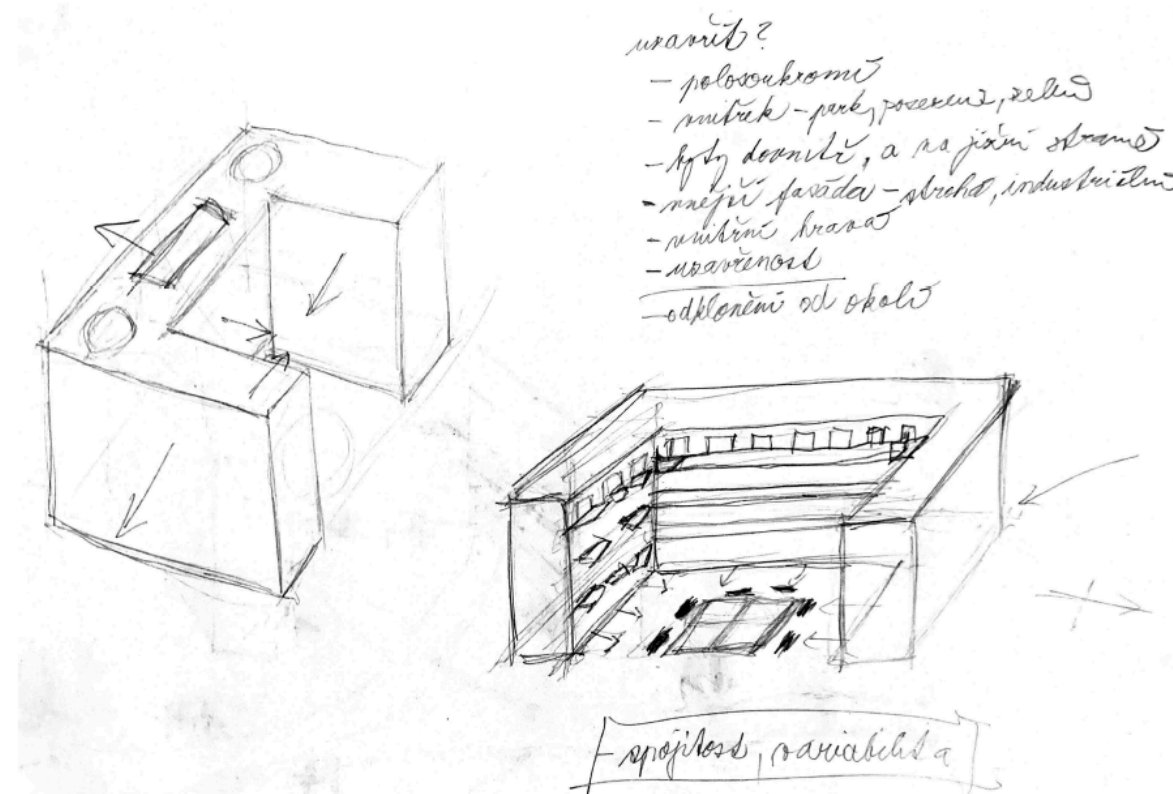 uzavřít?
- polosoukromí
- vnitřek - park, posezení, zeleň
- byty dovnitř, a na jižní straně
- vnější fasáda - strohá, industriální
- vnitřní hravá
- uzavřenost
- odklonění od okolí
- spojitost, variabilita